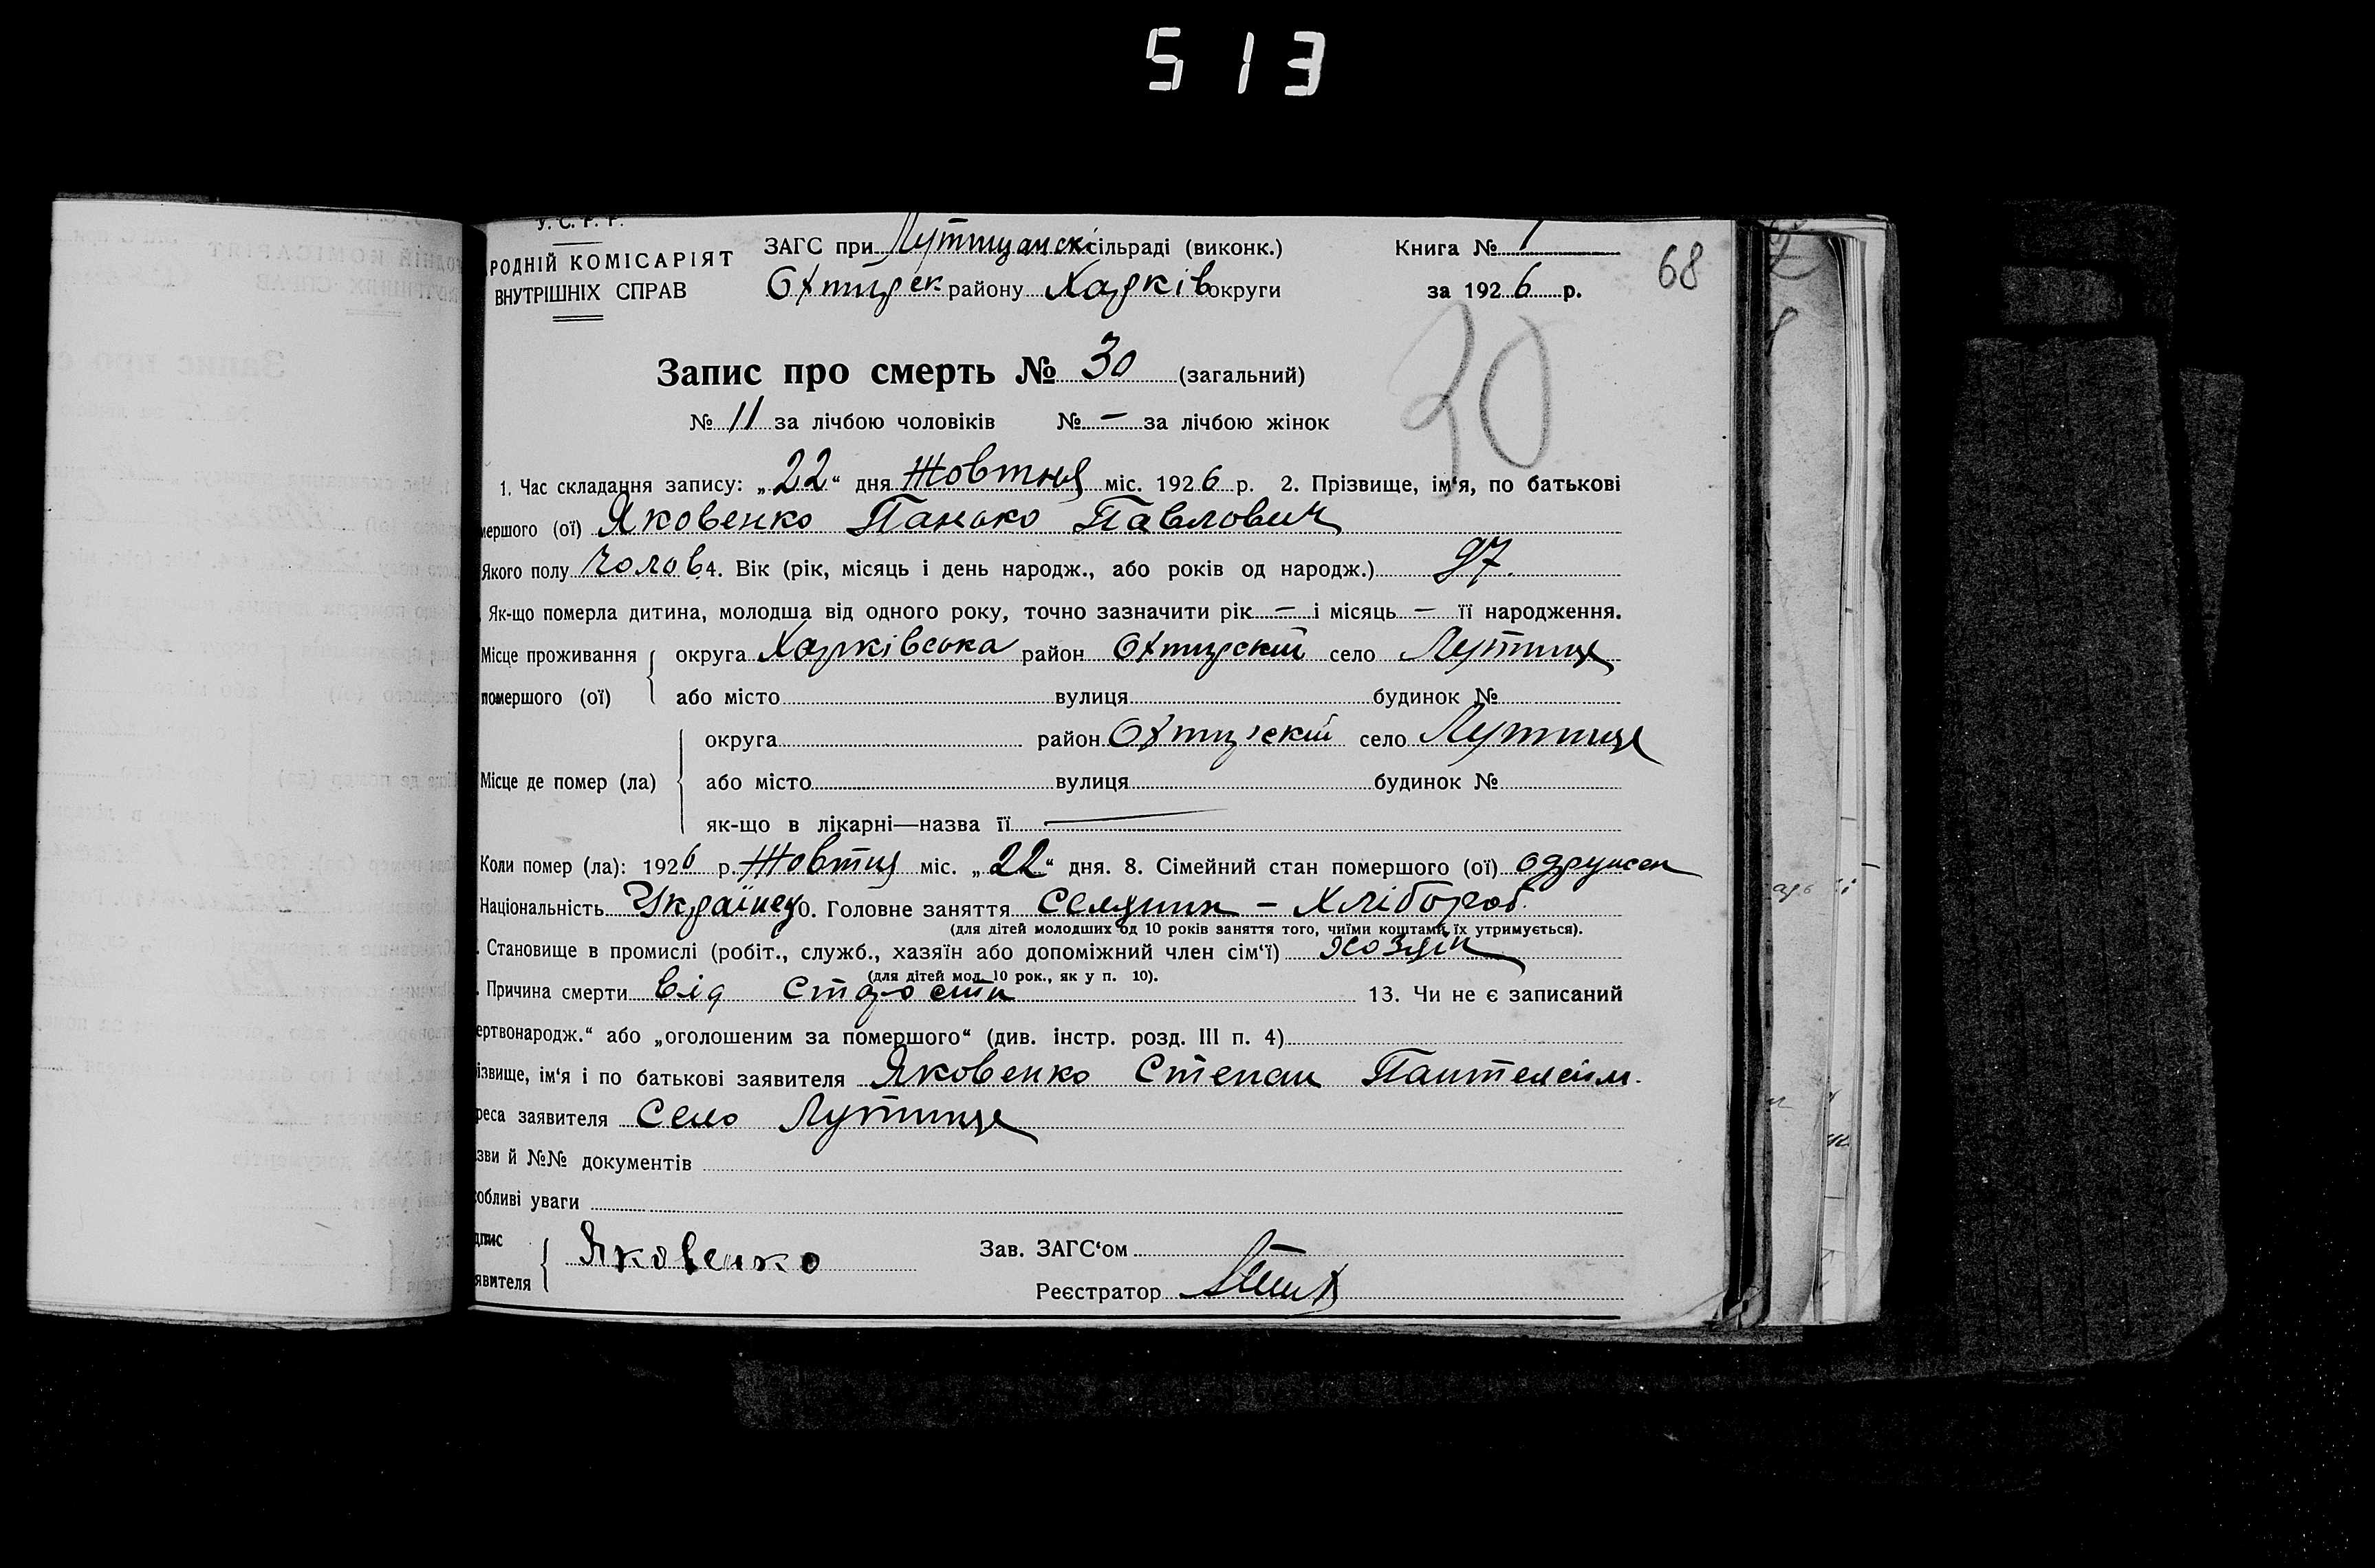 513
У. С. Р. Р.
РОДНІЙ КОМІСАРІЯТ
ВНУТРІШНІХ СПРАВ
ЗАГС при Лутищанскі сільраді (виконк.)
Охтирск району Харків округи
Книга № 1
за 1926 р.
68
Запис про смерть № 30 (загальний)
30
№ 11 за лічбою чоловіків № — за лічбою жінок
1. Час складання запису: „22“ дня Жовтня міс. 1926 р. 2. Прізвище, ім‘я, по батькові
мершого (ої) Яковенко Панько Павлович
Якого полу Чолов 4. Вік (рік, місяць і день народж., або років од народж.) 97.
Як-що померла дитина, молодша від одного року, точно зазначити рік — і місяць — її народження.
Місце проживання округа Харківська район Охтирский село Лутище
помершого (ої) або місто вулиця будинок №
округа район Охтирский село Лутище
Місце де помер (ла) або місто вулиця будинок №
як-що в лікарні—назва її
Коли помер (ла): 1926 р. Жовтня міс. „22“ дня. 8. Сімейний стан помершого (ої) одружен
Національність Українец 0. Головне заняття Селянин – Хлібороб
(для дітей молодших од 10 років заняття того, чиїми коштами їх утримується).
. Становище в промислі (робіт., служб., хазяїн або допоміжний член сім‘ї) хозяїн
(для дітей мол. 10 рок., як у п. 10).
. Причина смерти від старости 13. Чи не є записаний
ертвонародж.“ або „оголошеним за помершого“ (див. інстр. розд. III п. 4)
ізвище, ім‘я і по батькові заявителя Яковенко Степан Пантелеїм.
реса заявителя Село Лутище
зви й №№ документів
обливі уваги
дпис
явителя Яковенко
Зав. ЗАГС‘ом
Реєстратор